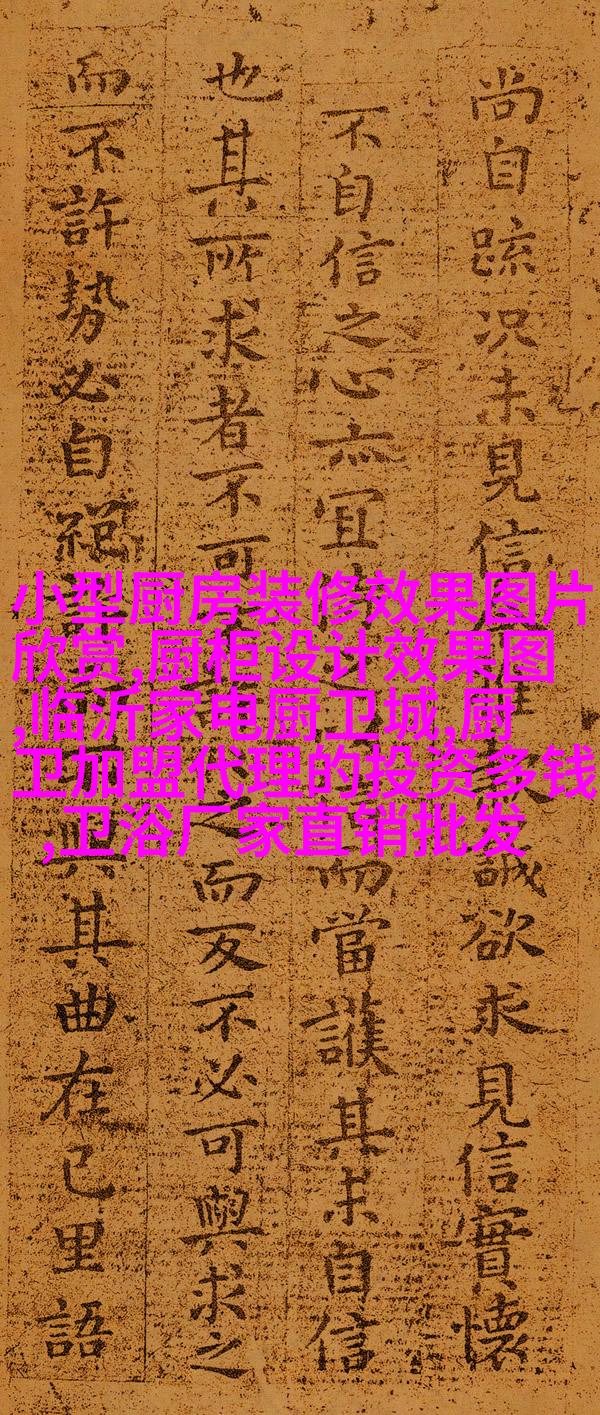 尚自疏况未見信
誠欲求見信實懷
不自信之心亦宜
而當護其未自信
也其所求者不可
之而反不必可與求之
而不許勢必自絕
與其曲在己里語
小型厨房装修效果图片
欣赏,厨柜设计效果图
,临沂家电厨卫城,厨
卫加盟代理的投资多钱
,卫浴厂家直销批发